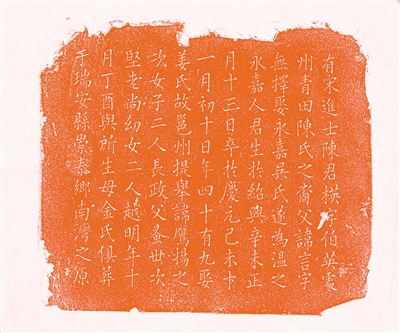 有宋進士陳君模字伯英處
州青田陳氏之裔父諱言字
無擇娶永嘉吳氏遂為溫之
永嘉人君生於紹興辛未正
月十三日卒於慶元己未十
一月初十日年四十有九娶
姜氏故邕州提舉諱鷹揚之
次女子二人長政父蚤世次
堅老尚幼女二人越明年十
月丁酉與所生母金氏俱葬
于瑞安縣崇泰鄉南灣之原